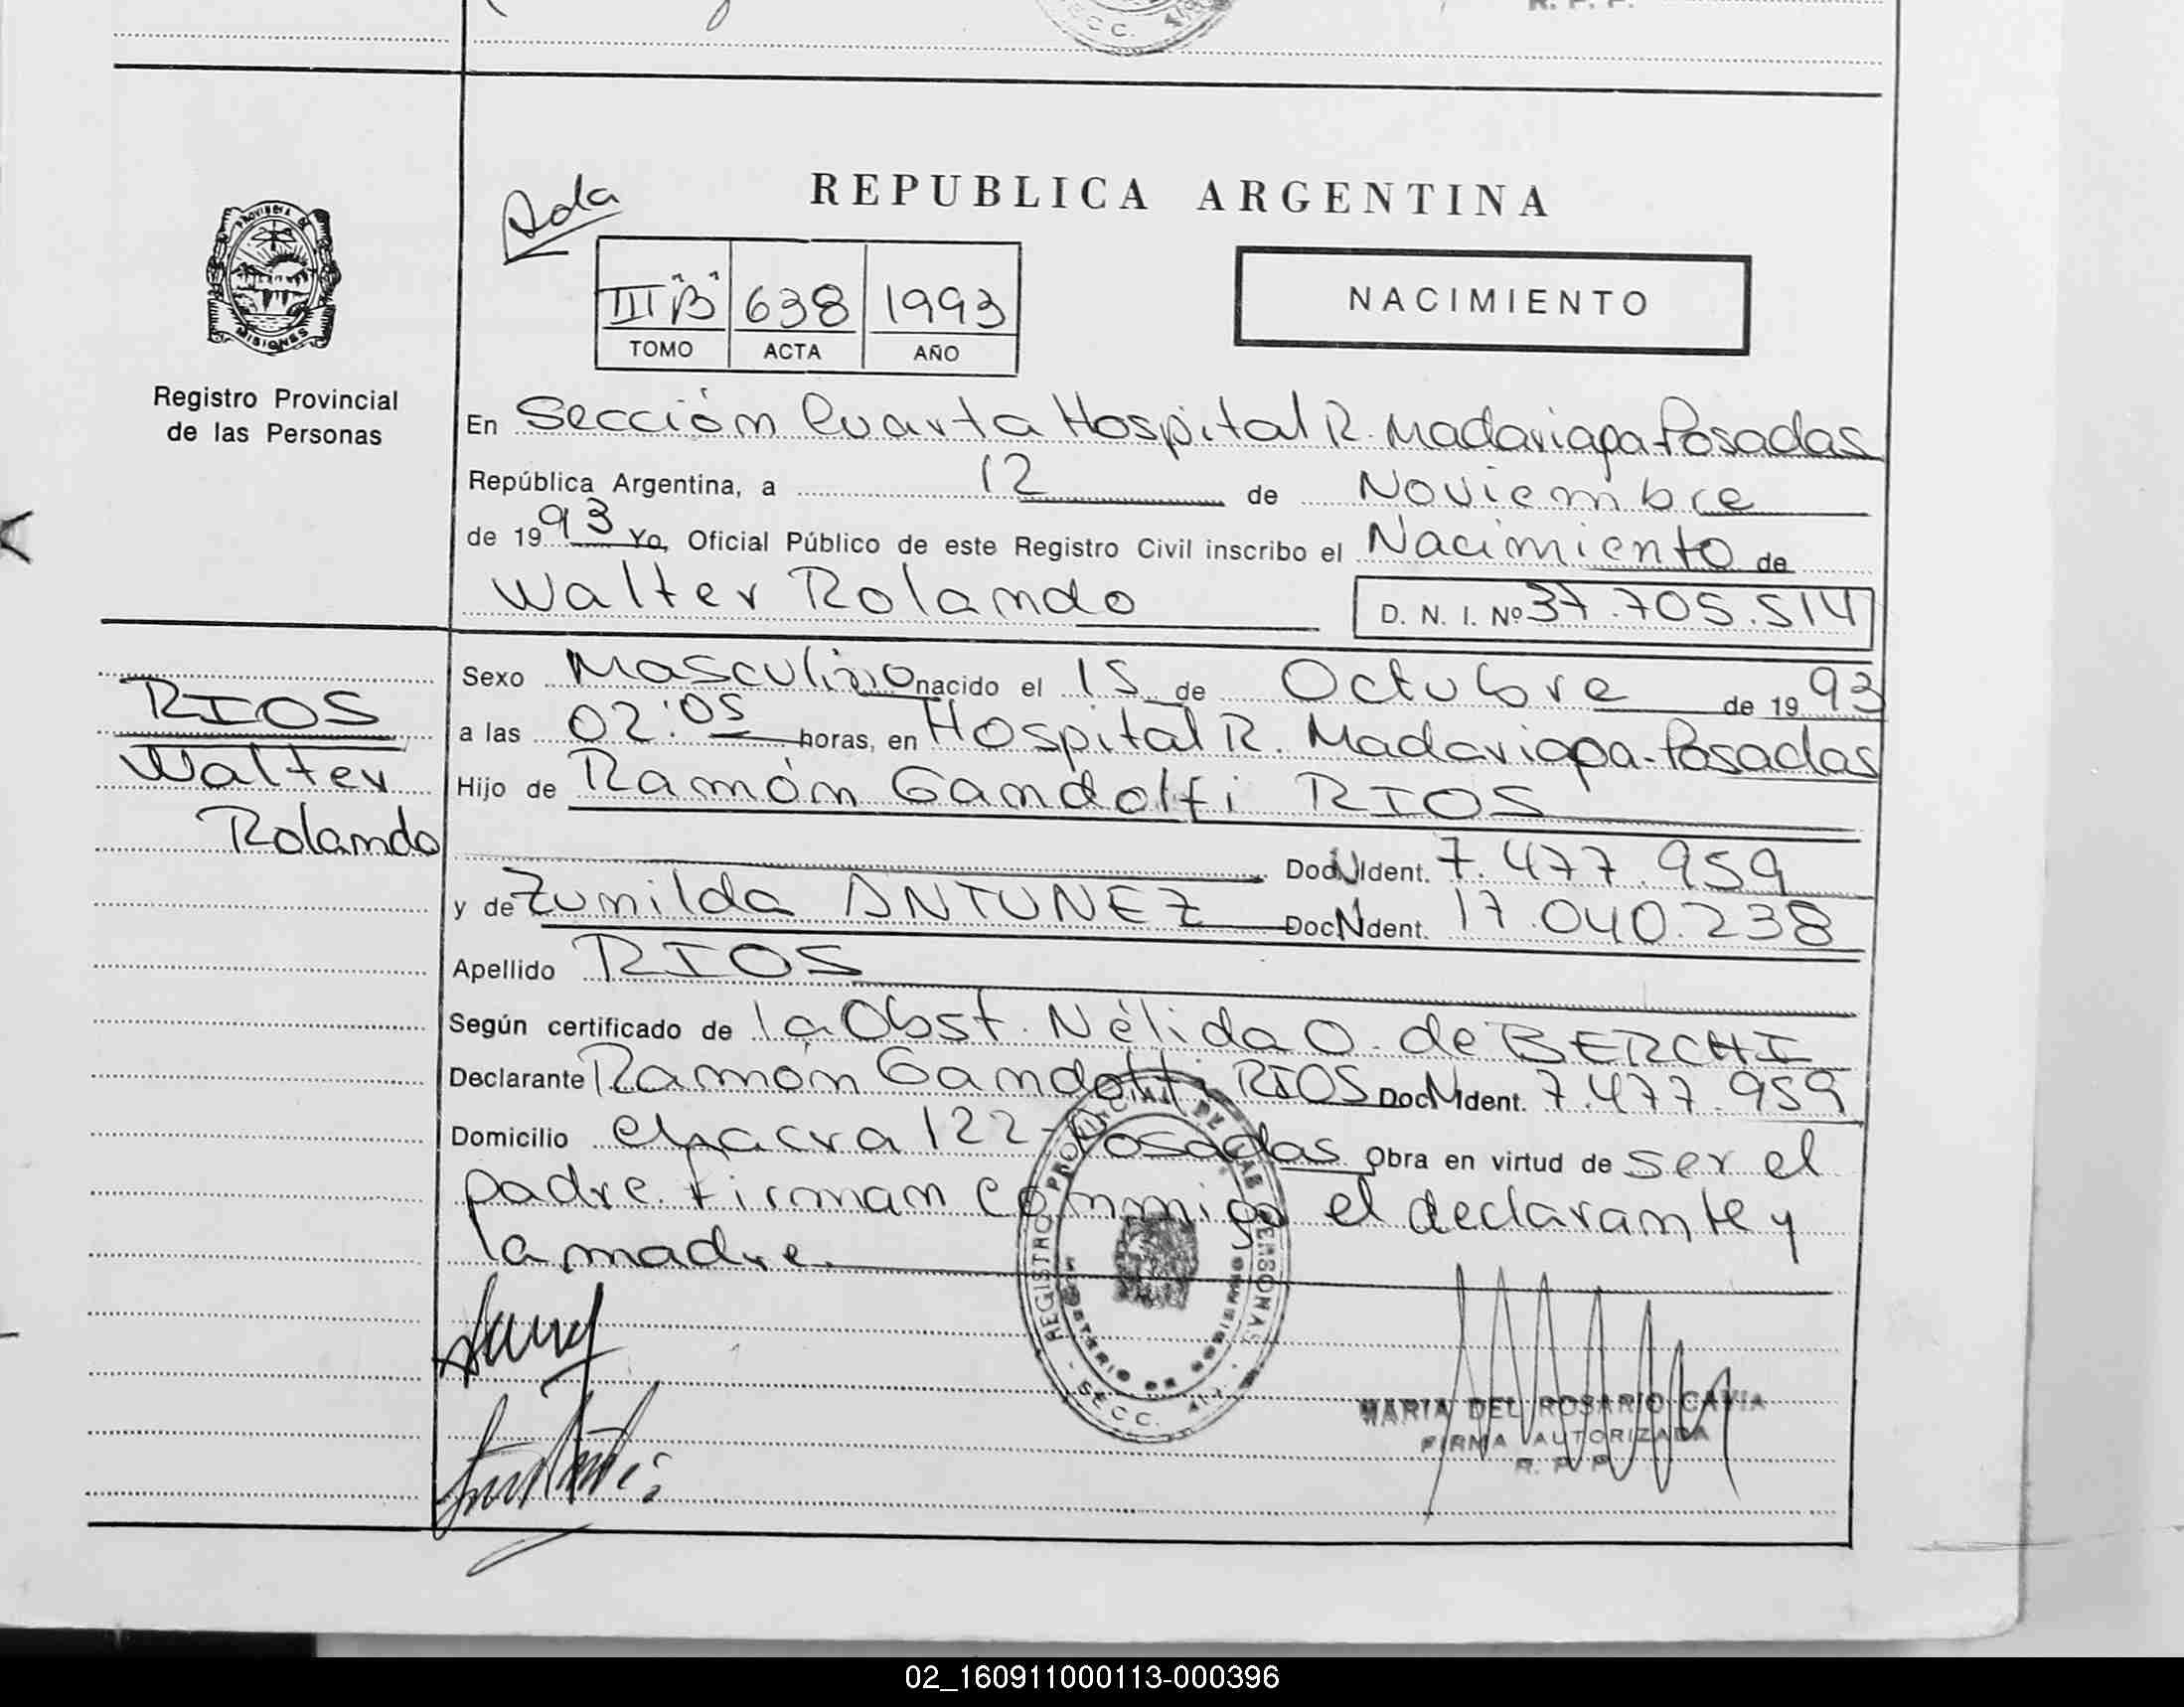 R. P. P.
SECC.
PROVINCIA DE
MISIONES
Registro Provincial
de las Personas
RIOS
Walter
Rolando
Ada
REPUBLICA ARGENTINA
III "B" 638 1993
TOMO ACTA AÑO
NACIMIENTO
En Sección Cuarta Hospital R. Madariaga-Posadas
República Argentina, a 12 de Noviembre
de 1993 Yo, Oficial Público de este Registro Civil inscribo el Nacimiento de
Walter Rolando D. N. I. Nº 37.705.514
Sexo Masculino nacido el 15 de Octubre de 1993
a las 02:05 horas, en Hospital R. Madariaga-Posadas
Hijo de Ramón Gandolfi RIOS
Doc. Ident. 7.477.959
y de Zunilda ANTUNEZ Doc. Ident. 17.040.238
Apellido RIOS
Según certificado de la Obst. Nélida O. de BERCHI
Declarante Ramón Gandolfi RIOS Doc. Ident. 7.477.959
Domicilio chacra 122-Posadas Obra en virtud de ser el
padre. Firman conmigo el declarante y
la madre.
REGISTRO PROVINCIAL DE LAS PERSONAS
MINISTERIO DE GOBIERNO
SECC. 4ta
MARIA DEL ROSARIO CAVIA
FIRMA AUTORIZADA
R. P. P.
02_160911000113-000396